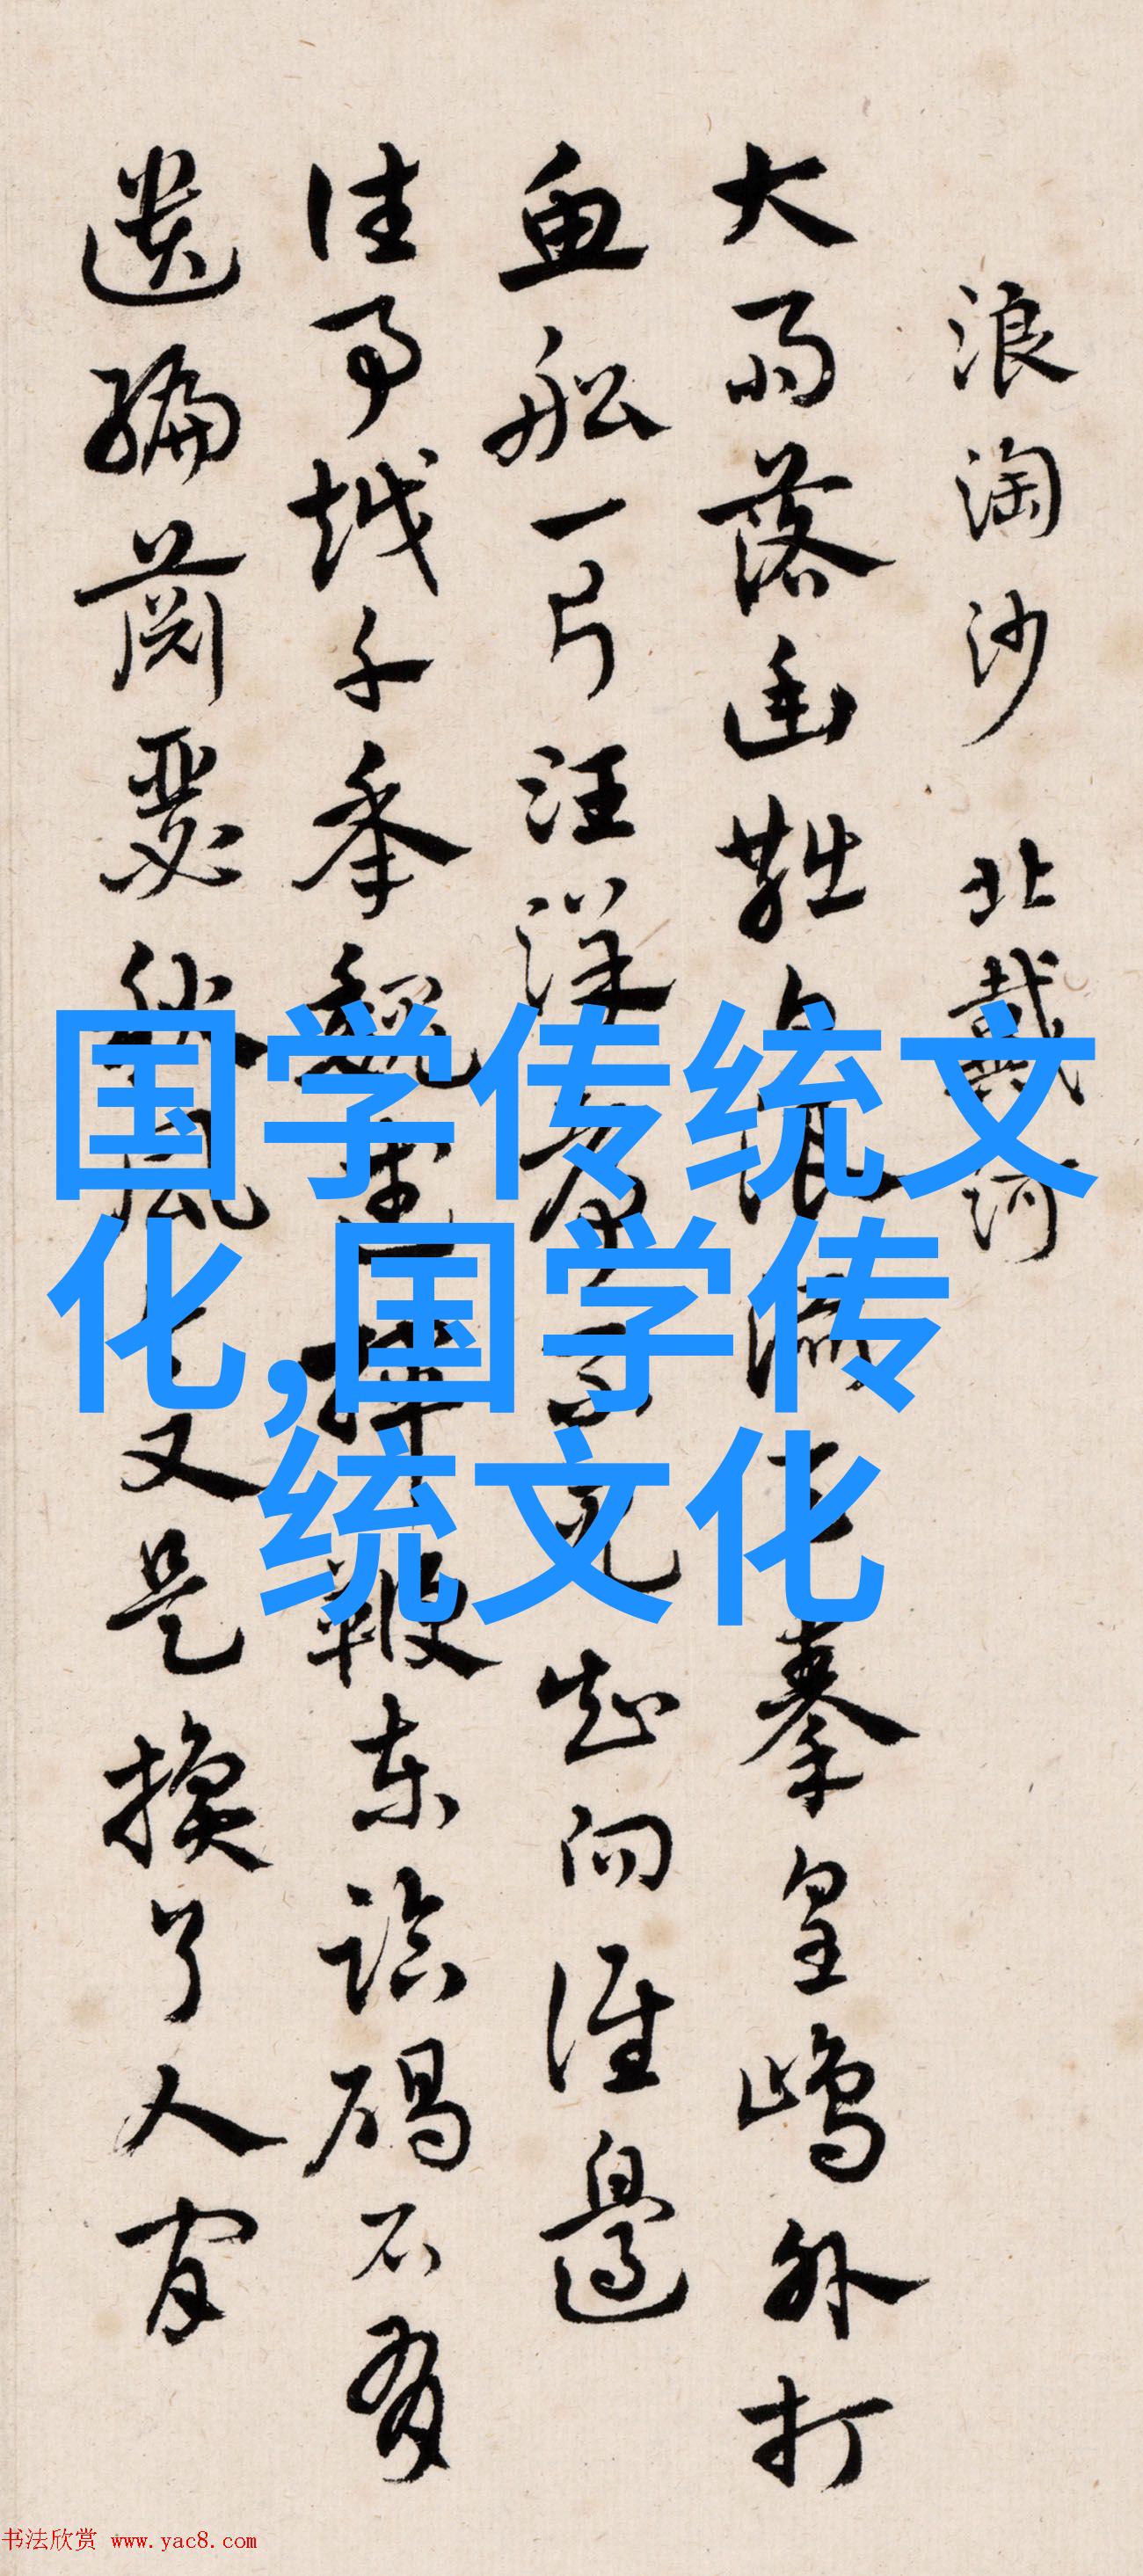 浪淘沙 北戴河
大雨落幽燕白浪滔天秦皇島外打
魚船一片汪洋都不見知向誰邊
往事越千年魏武揮鞭東臨碣石有
遺編蕭瑟秋風今又是換了人間
国学传统文
化,国学传
统文化
书法欣赏 www.yac8.com